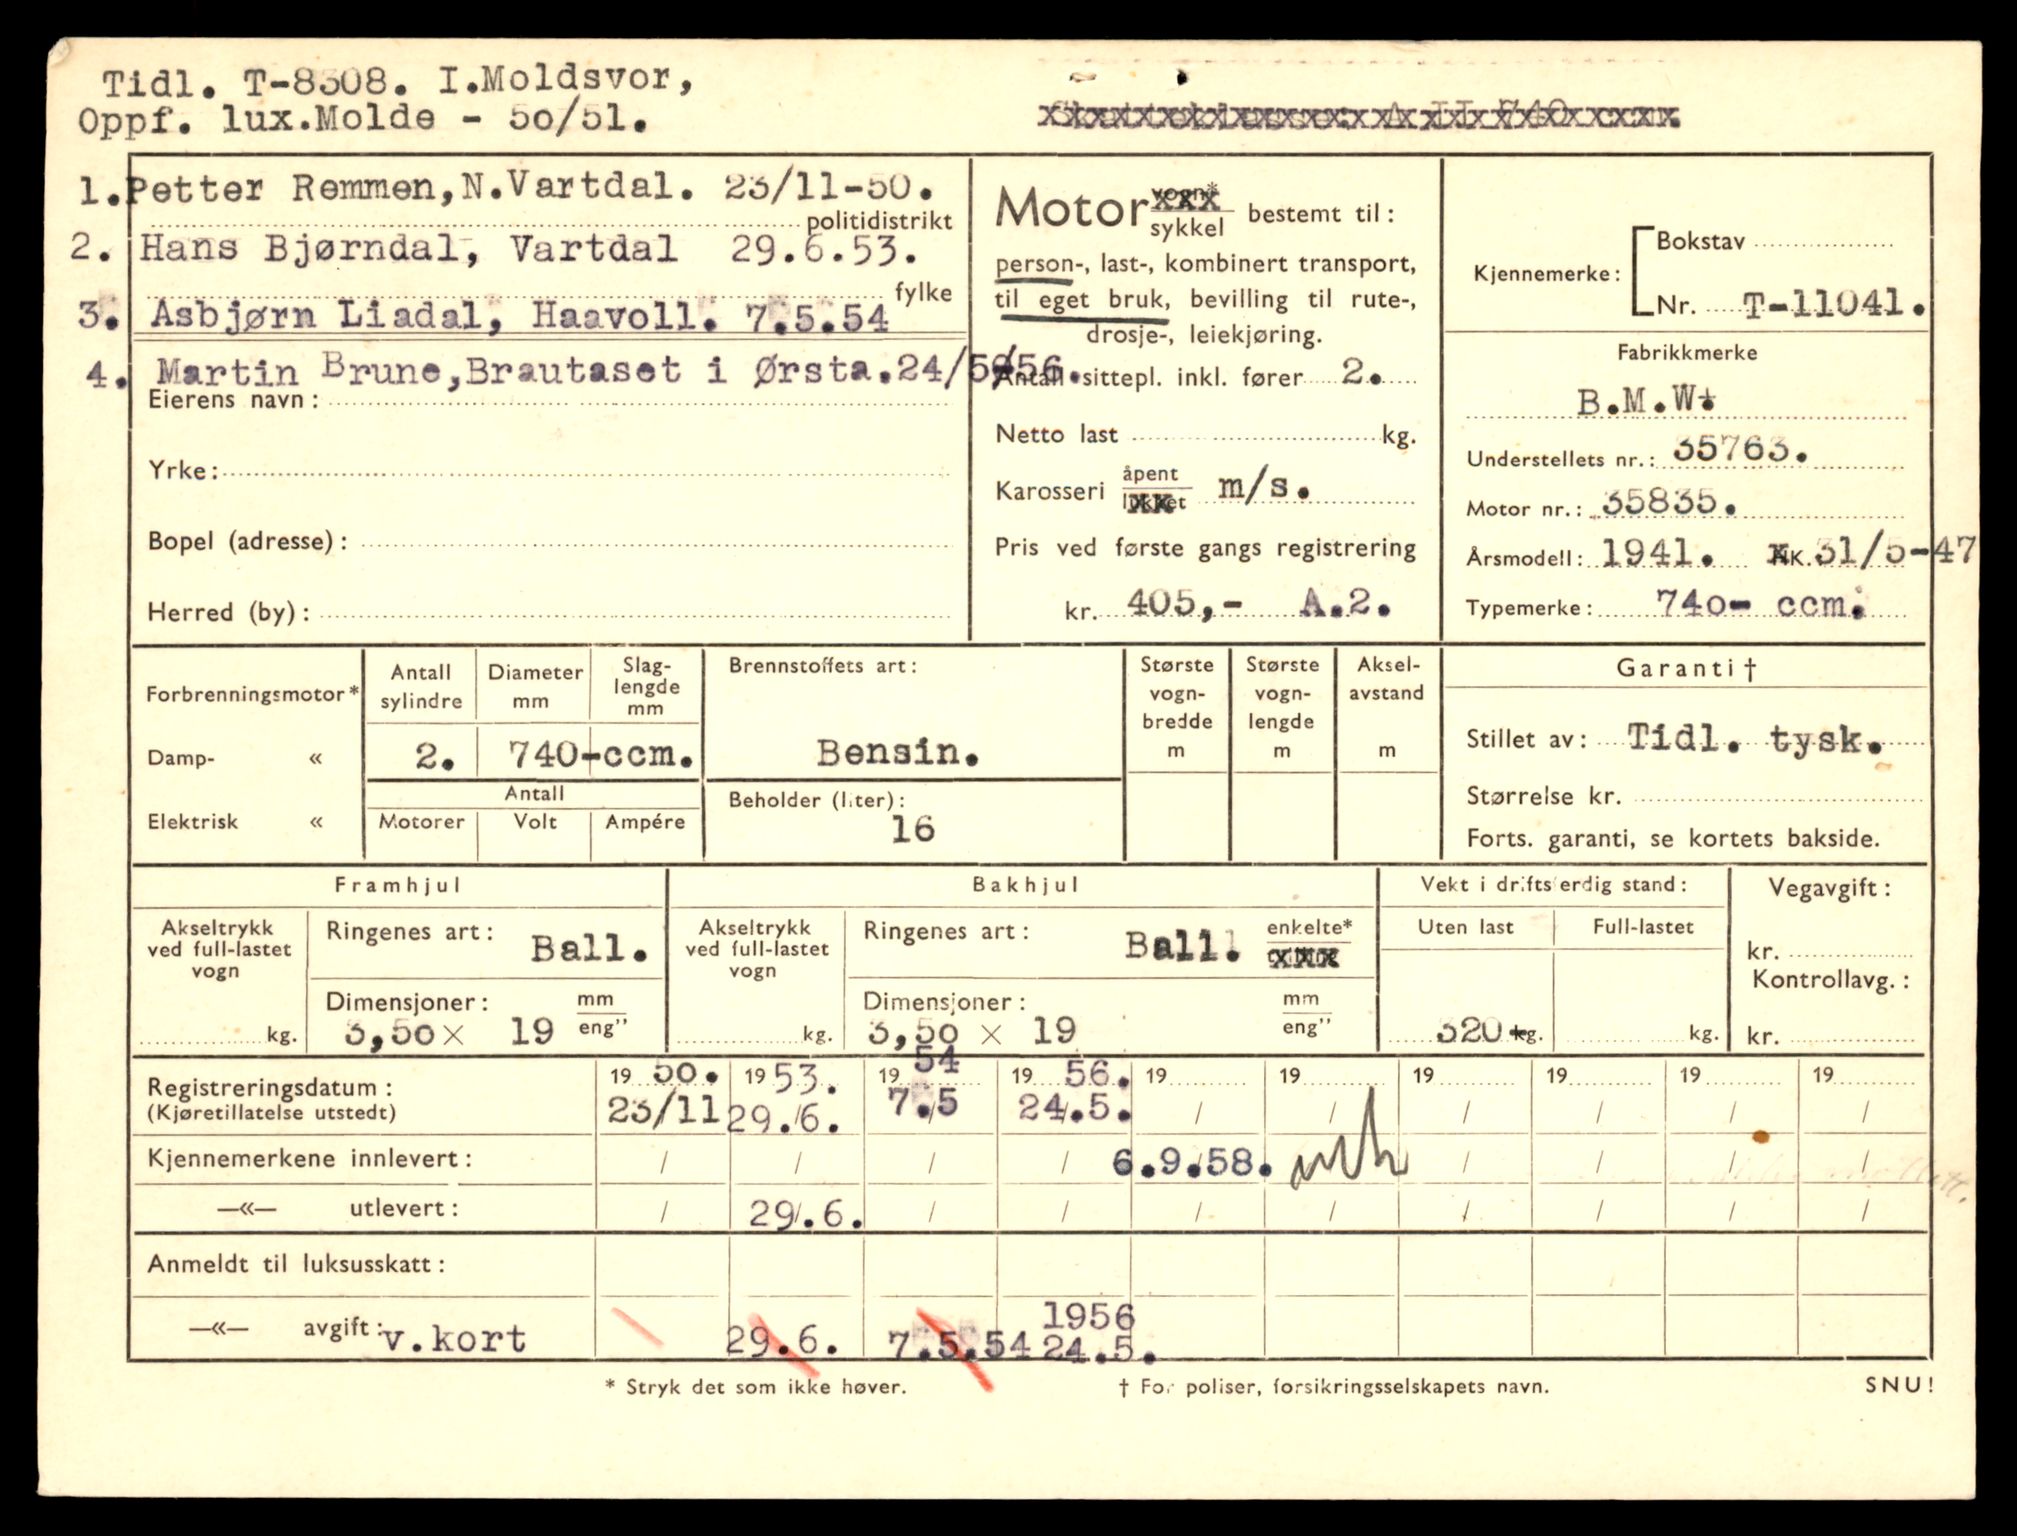 Tidl. T-8308. I.Moldsvor,
Oppf. lux.Molde - 50/51.
1.Petter Remmen,N.Vartdal. 23/11-50.
politidistrikt
2. Hans Bjørndal, Vartdal 29.6.53.
fylke
3. Asbjørn Liadal, Haavoll. 7.5.54
4. Martin Brune,Brautaset i Ørsta.24/5-56.
Eierens navn:
Yrke:
Bopel (adresse):
Herred (by):
Motor vogn* sykkel bestemt til:
person-, last-, kombinert transport,
til eget bruk, bevilling til rute-,
drosje-, leiekjøring.
Antall sittepl. inkl. fører 2.
Netto last kg.
Karosseri åpent lukket m/s.
Pris ved første gangs registrering
kr. 405,- A.2.
Kjennemerke: Bokstav
Nr. T-11041.
Fabrikkmerke
B.M.W.
Understellets nr.: 35763.
Motor nr.: 35835.
Årsmodell: 1941. NK. 31/5-47
Typemerke: 740- ccm.
Forbrenningsmotor*
Damp- «
Elektrisk «
Antall sylindre
Diameter mm
Slag-lengde mm
2. 740-ccm.
Antall
Motorer Volt Ampére
Brennstoffets art:
Bensin.
Beholder (liter):
16
Største vogn-bredde m
Største vogn-lengde m
Aksel-avstand m
Garanti †
Stillet av: Tidl. tysk.
Størrelse kr.
Forts. garanti, se kortets bakside.
Framhjul
Akseltrykk ved full-lastet vogn
kg.
Ringenes art: Ball.
Dimensjoner: mm eng"
3,50 × 19
Bakhjul
Akseltrykk ved full-lastet vogn
kg.
Ringenes art: Ball. enkelte*
Dimensjoner: mm eng"
3,50 × 19
Vekt i driftsferdig stand:
Uten last Full-lastet
320 kg. kg.
Vegavgift:
kr.
Kontrollavg.:
kr.
Registreringsdatum: 19 50. 19 53. 19 54 19 56. 19 19 19 19 19 19
(Kjøretillatelse utstedt) 23/11 29./6. 7./5 24/.5. / / / / / /
Kjennemerkene innlevert: / / / / 6.9.58. / / / /
—«— utlevert: / 29./6. / / / / / / / /
Anmeldt til luksusskatt:
—«— avgift: v.kort 29.6. 7.5.54 1956 24.5.
* Stryk det som ikke høver.
† For poliser, forsikringsselskapets navn.
SNU!